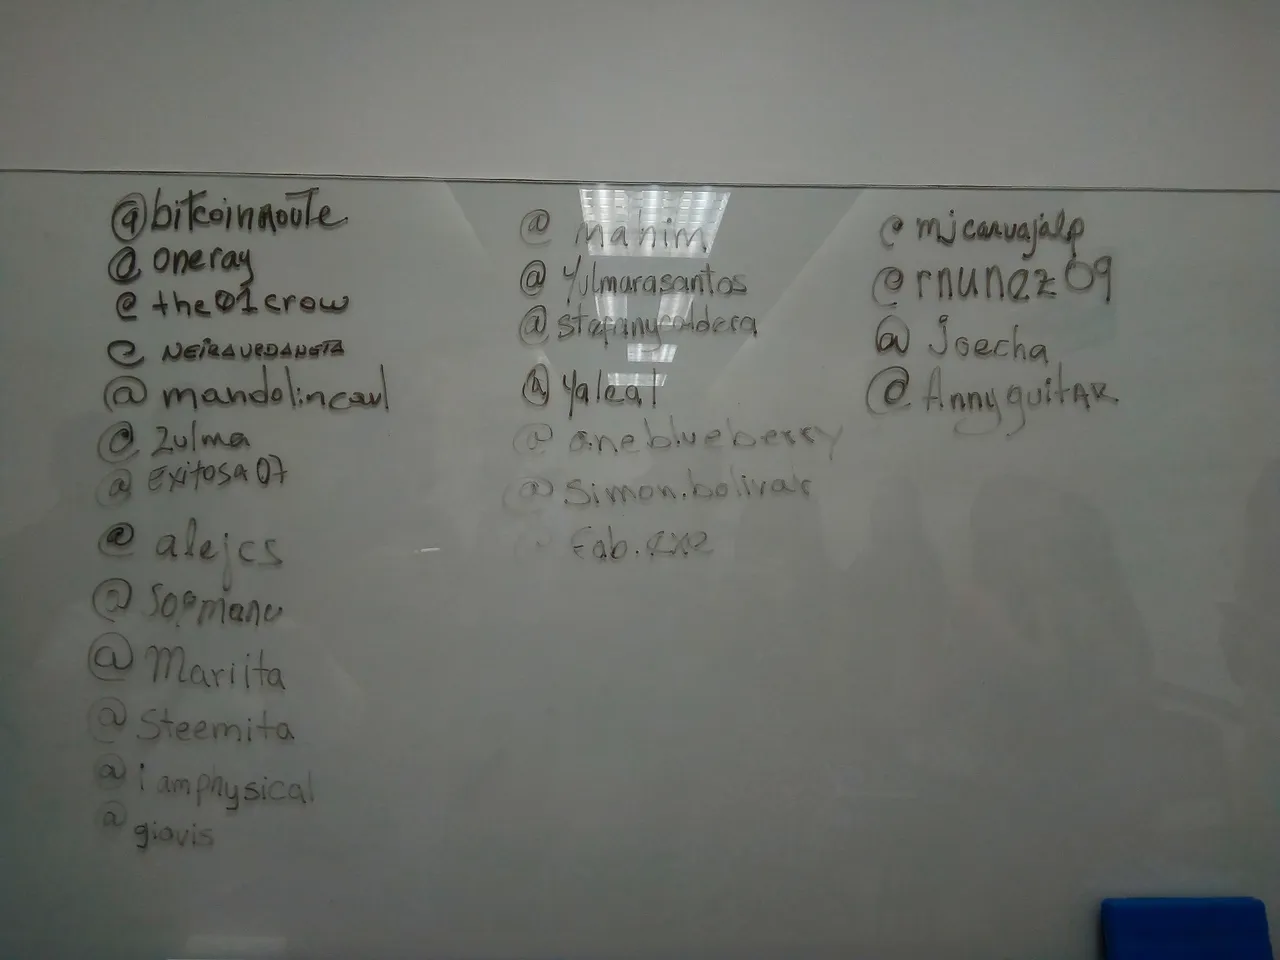 @bitcoinroute
@oneray
@the01crow
@NEIRAURDANETA
@mandolincarl
@Zulma
@EXitosa07
@alejcs
@Sofmanu
@Mariita
@Steemita
@iamphysical
@giovis
@mahim
@Yulmarasantos
@stefanycaldera
@yaleal
@aneblueberry
@Simon.bolivar
@Fab.exe
@mjcarvajalp
@rnunez09
@joecha
@AnnyguitAR